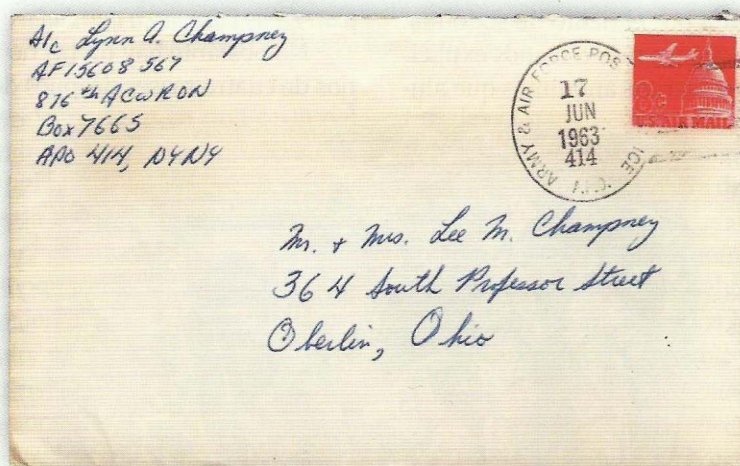 A1c Lynn A. Champney
AF15608567
876th ACWRON
Box 7665
APO 414, NYNY
ARMY & AIR FORCE POS ICE
17
JUN
1963
414
8¢
U.S. AIR MAIL
Mr. + Mrs. Lee M. Champney
364 South Professor Street
Oberlin, Ohio